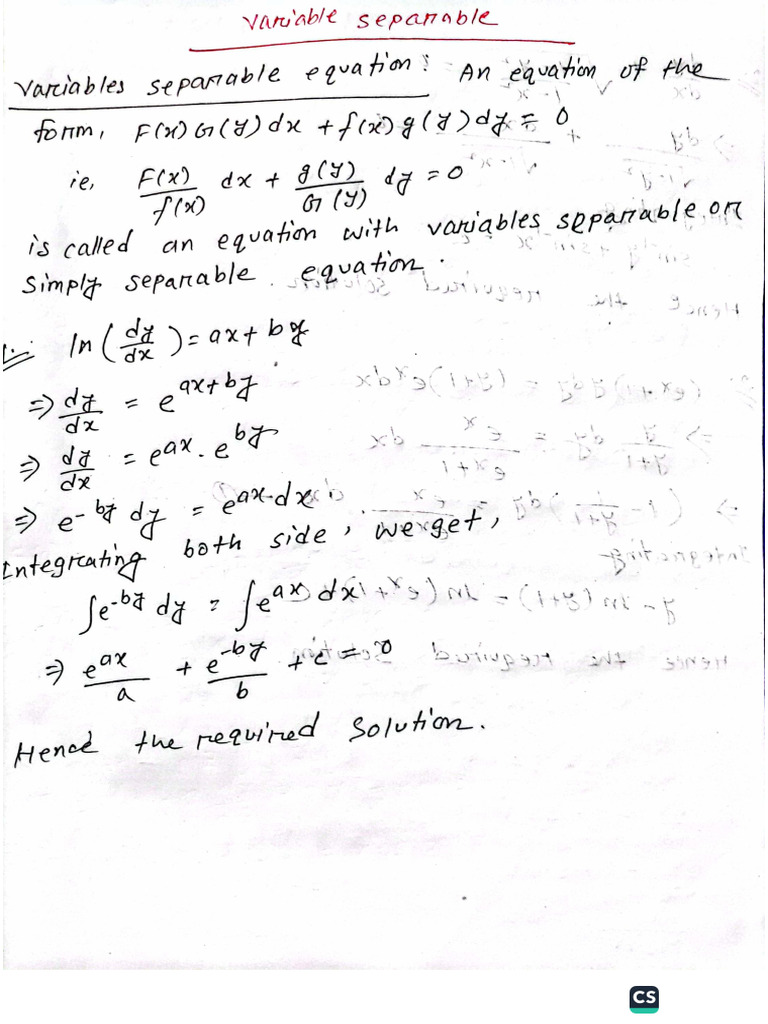 Variable separable
Variables separable equation: An equation of the
form, F(x) G(y) dx + f(x) g(y) dy = 0
ie, F(x)/f(x) dx + g(y)/G(y) dy = 0
is called an equation with variables separable or
simply separable equation.
1. ln(dy/dx) = ax + by
⇒ dy/dx = e^(ax+by)
⇒ dy/dx = e^(ax) . e^(by)
⇒ e^(-by) dy = e^(ax) dx
Integrating both side, we get,
∫e^(-by) dy = ∫e^(ax) dx
⇒ e^(ax)/a + e^(-by)/b + c = 0
Hence the required solution.
CS